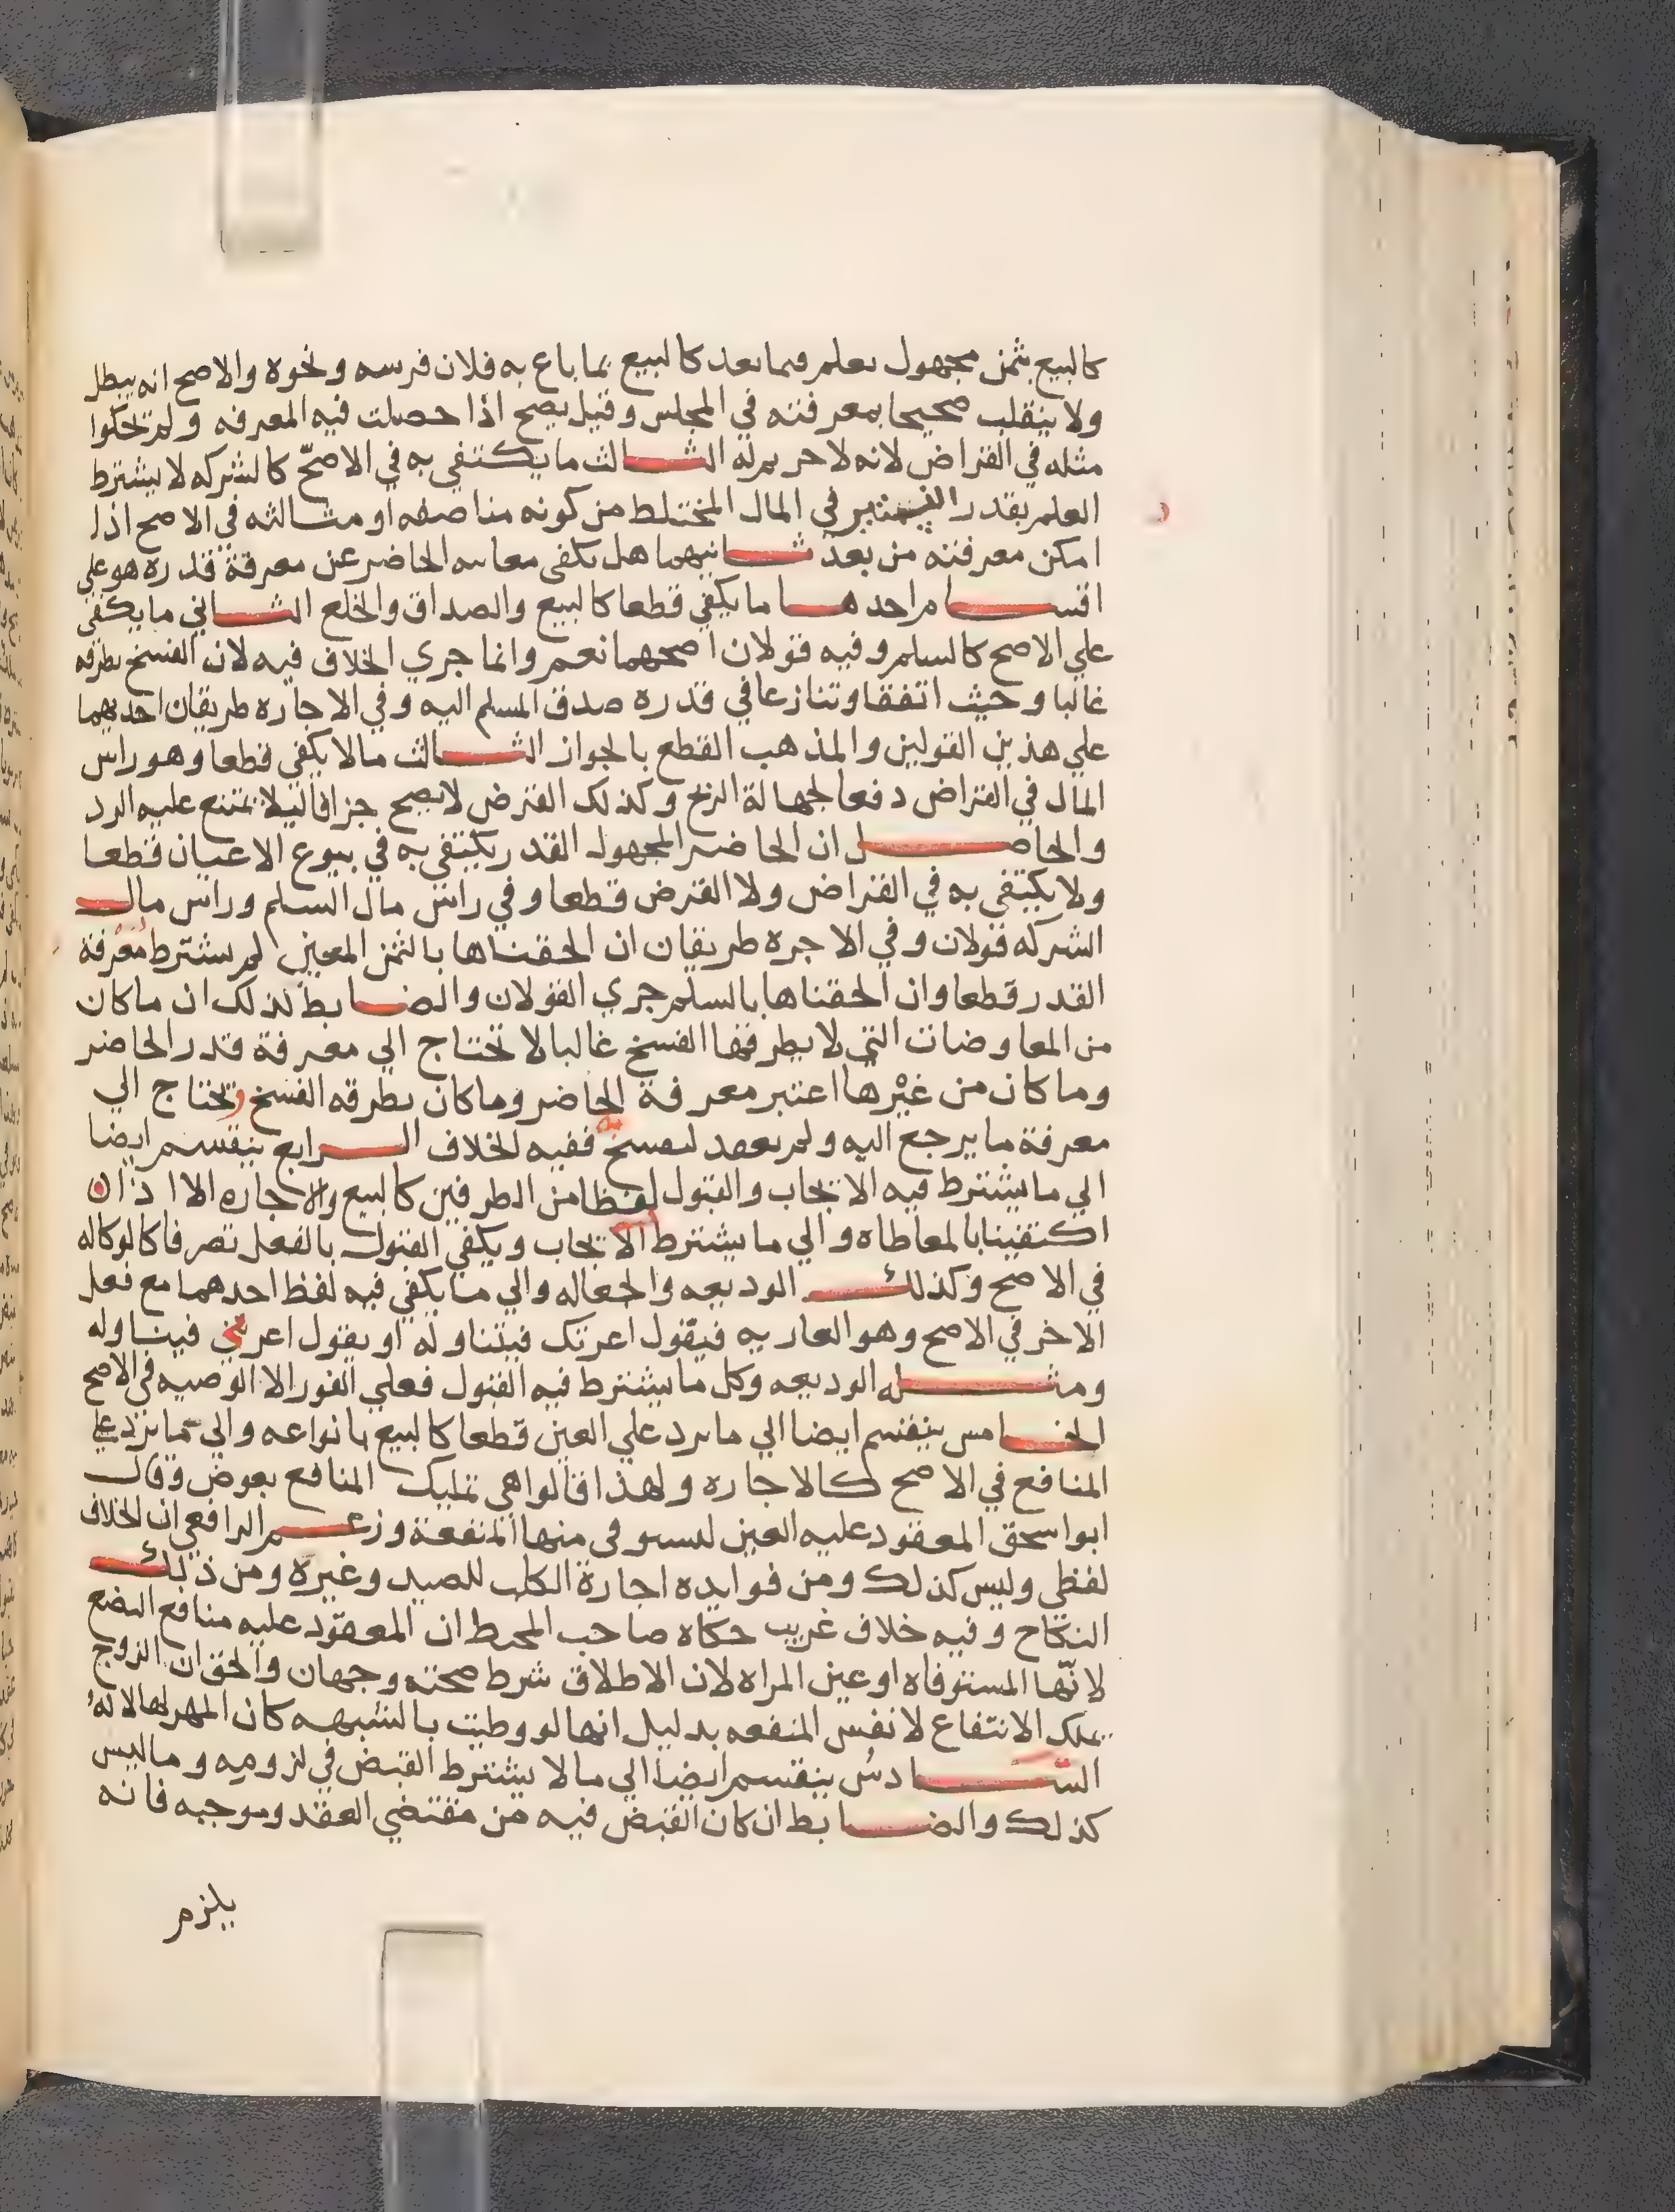 كالبيع بثمن مجهول يعلم فيما بعد كالبيع بما باع به فلان فرسه ونحوه والاصح انه يبطل
ولا ينقلب صحيحا بمعرفته في المجلس وقيل يصح اذا حصلت فيه المعرفه ولم يحكوا
مثله في القراض لانه لا حريم له الثالث ما يكتفي به في الاصحّ كالشركه لا يشترط
العلم بقدر في المال المختلط من كونه مناصفه او مثالثه في الاصح اذا
امكن معرفته من بعد ثانيهما هل تكفي معاينه الحاضر عن معرفة قدره هو علي
اقسام احدها ما يكفي قطعا كالبيع والصداق والخلع الثاني ما يكفي
علي الاصح كالسلم وفيه قولان اصحهما نعم وانما جري الخلاف فيه لان الفسخ يطرقه
غالبا وحيث اتفقا وتنازعا في قدره صدق المسلم اليه وفي الاجاره طريقان احديهما
علي هذين القولين والمذهب القطع بالجواز الثالث ما لا يكفي قطعا وهو راس
المال في القراض دفعا لجهالة الربح وكذلك القرض لا يصح جزافا ليلا يمتنع عليه الرد
والحاصل ان الحاضر المجهول القدر يكتفي به في بيوع الاعيان قطعا
ولا يكتفي به في القراض ولا القرض قطعا وفي راس مال السلم وراس مال
الشركه قولان وفي الاجره طريقان ان الحقناها بالثمن المعين لم يشترط مُعْرفة
القدر قطعا وان الحقناها بالسلم جري القولان والضابط لذلك ان ما كان
من المعاوضات التي لا يطرقها الفسخ غالبا لا تحتاج الي معرفة قدر الحاضر
وما كان من غيْرها اعتبر معرفة الحاضر وما كان يطرقه الفسخ وتحتاج الي
معرفة ما يرجع اليه ولم يعقد ليفسخ ففيه الخلاف الرابع ينقسم ايضا
الي ما يشترط فيه الايجاب والقبول لفظا من الطرفين كالبيع والاجاره الا اذا
اكتفينا بالمعاطاه والي ما يشترط الايجاب ويكفي القبول بالفعل تصرفا كالوكاله
في الاصح وكذلك الوديعه والجعاله والي ما يكفي فيه لفظ احدهما مع فعل
الاخر في الاصح وهو العاريه فيقول اعرتك فيتناوله او يقول اعرني فيناوله
ومثله الوديعه وكل ما يشترط فيه القبول فعلي الفور الا الوصيه في الاصح
الخامس ينقسم ايضا الي ما يرد علي العين قطعا كالبيع بانواعه والي ما يرد علي
المنافع في الاصح كالاجاره ولهذا قالوا هي تمليك المنافع بعوض وقال
ابو اسحق المعقود عليه العين ليستوفي منها المنفعة وزعم الرافعي ان الخلاف
لفظي وليس كذلك ومن فوايده اجارة الكلب للصيد وغيره ومن ذلك
النكاح وفيه خلاف غريب حكاه صاحب المحيط ان المعقود عليه منافع البضع
لانّها المستوفاه او عين المراه لان الاطلاق شرط صحته وجهان والحق ان الزوج
يملك الانتفاع لا نفس المنفعه بدليل انها لو وطيت بالشبهه كان المهر لها لا له
السّادسُ ينقسم ايضا الي ما لا يشترط القبض في لزوميه وما ليس
كذلك والضابط ان كان القبض فيه من مقتضي العقد وموجبه فانه
يلزم